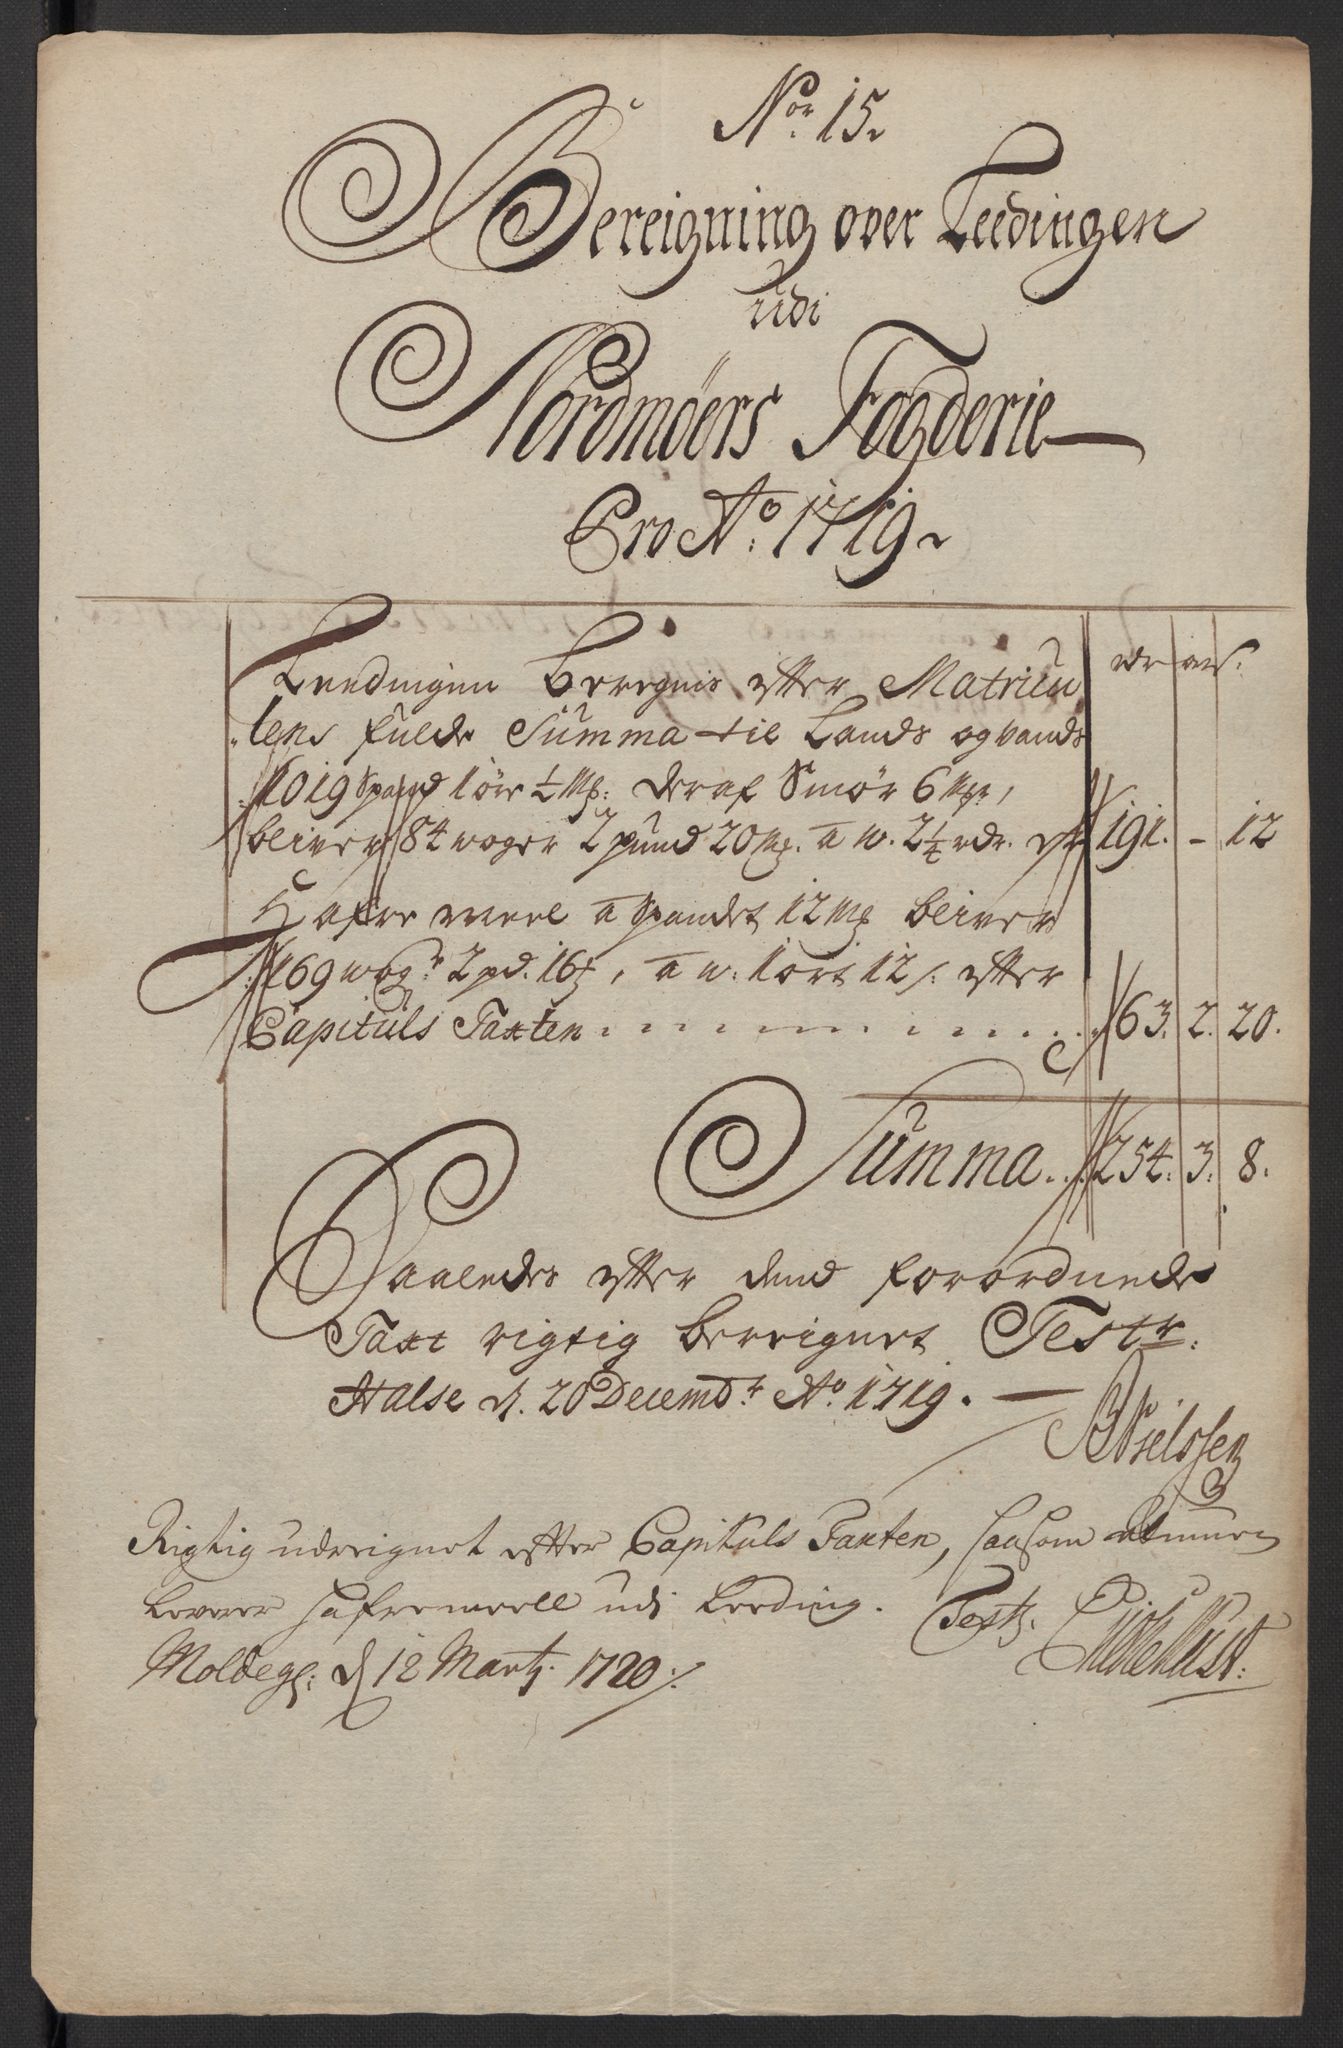 Nor. 15.
Bereigning over Leedingen
udi
Nordmöers Fogderie
Pro Ao. 1719.
rdr ort s.
Leedingen Beregnis efter Matricu
lens fulde Summa til Lands og vands
1019 Spand 1 öre ½ Mk: deraf Smör 6 Mk,
bliver 84 woger 2 pund 20 Mk. a w. 2¼ rdr. er 191. - 12
Hafre meel a Spandet 12 Mk bliver
169 wog.r 2 pd. 16, a w. 1 ort 12 s. efter
Capituls Taxten 163. 2. 20.
Summa 254. 3. 8.
Saaledes efter dend forordnede
Taxt rigtig bereignet Testr.
Halse d. 20 Decembr. Ao. 1719.
Nielssen
Rigtig udreignet efter Capituls Taxten, saasom Almuen
leverer hafremeell udi Leeding. Test.
Moldegr. d 12 Martj. 1720